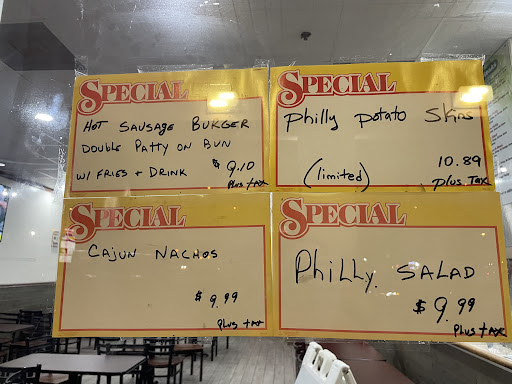 SPECIAL
HOT SAUSAGE BURGER
DOUBLE PATTY ON BUN
W/ FRIES + DRINK $ 9.10
PLUS + TAX
SPECIAL
Philly potato Skins
(limited) 10.89
plus TAX
SPECIAL
CAJUN NACHOS
$ 9.99
PLUS + TAX
SPECIAL
PHILLY. SALAD
$ 9.99
PLUS + TAX